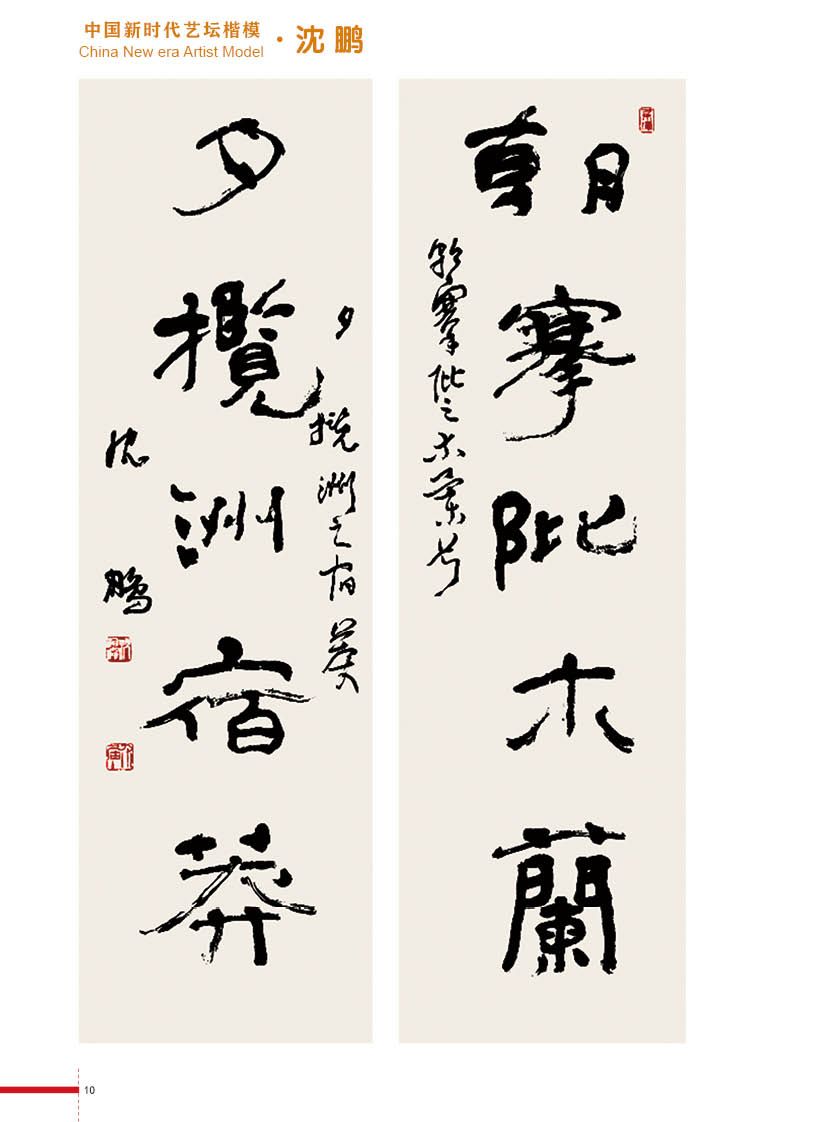 中国新时代艺坛楷模
China New era Artist Model
·沈鹏
朝搴阰木蘭
朝搴阰之木蘭兮
夕攬洲宿莽
夕攬洲之宿莽
沈鹏
10